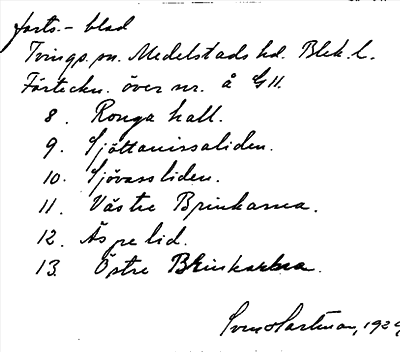 forts.- blad
Tvings sn. Medelstads hd. Blek. l.
Förteckn. över nr. å G 11.
8. Ronga hall.
9. Sjöttanissaliden.
10. Sjövassliden.
11. Västre Brinkarna.
12. Äspelid.
13. Östre Brinkarna.
Sven Hartman, 1929